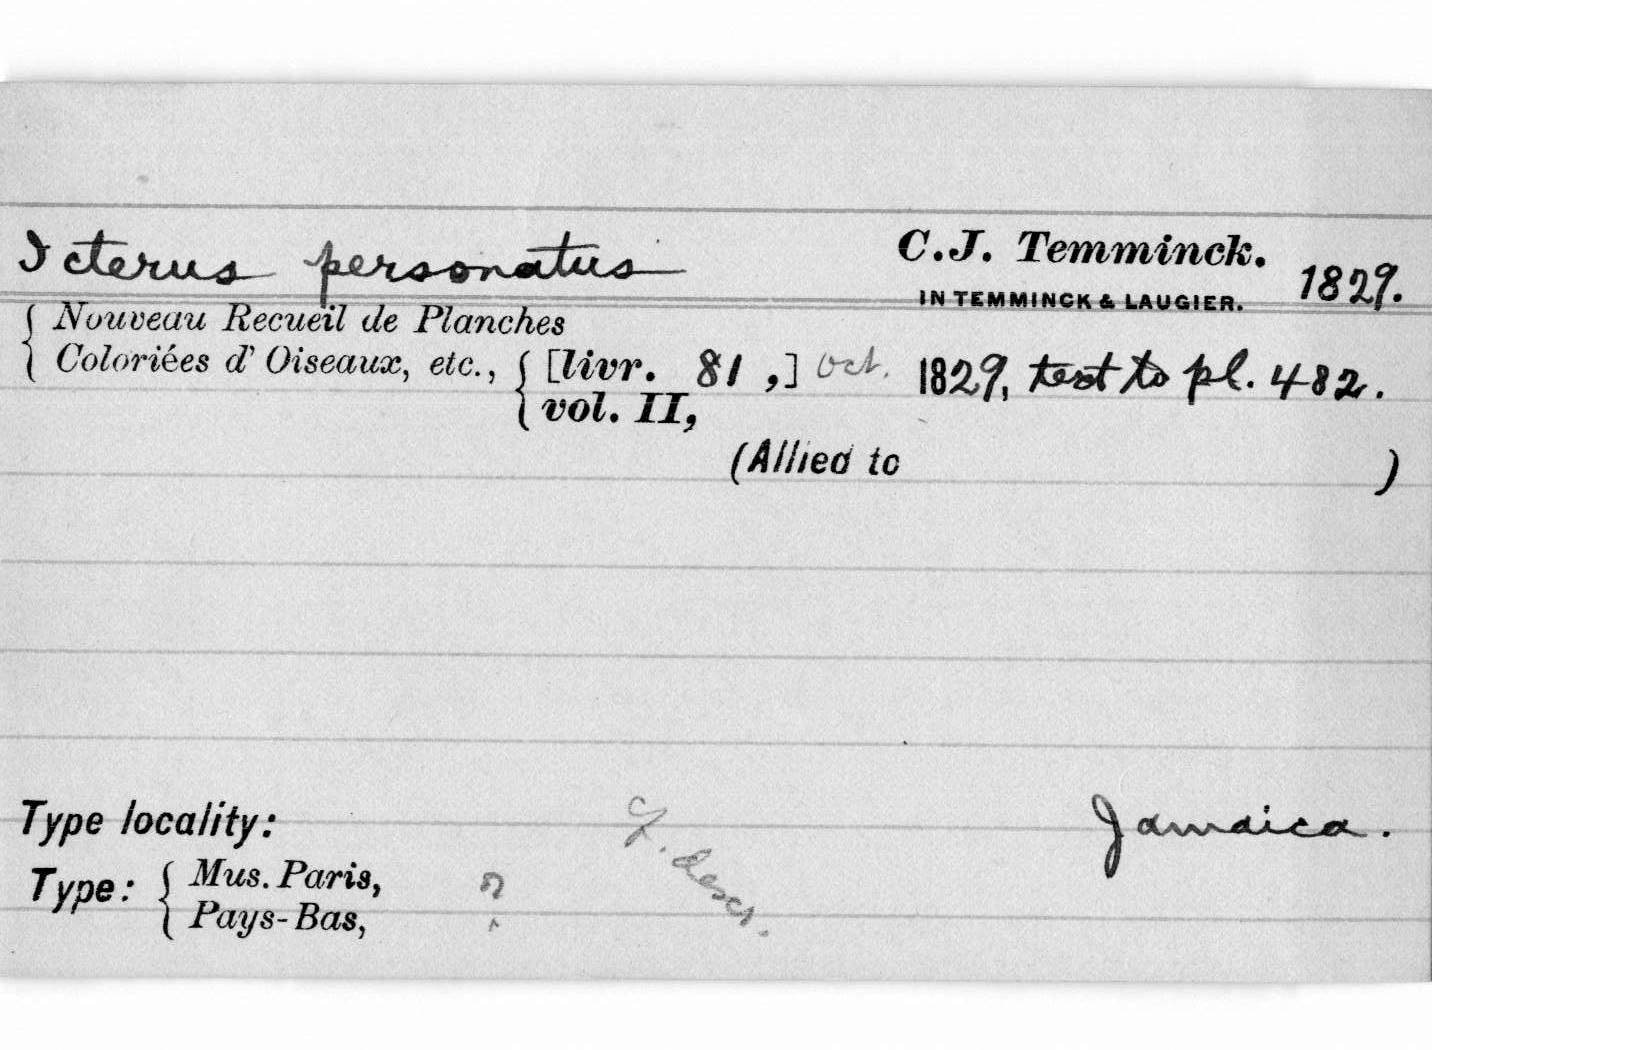 Icterus personatus C.J. Temminck. 1829.
IN TEMMINCK & LAUGIER.
{ Nouveau Recueil de Planches
Coloriées d' Oiseaux, etc., { [livr. 81 ,] Oct. 1829, text to pl. 482.
vol. II,
(Allied to )
Type locality: Jamaica.
Type: { Mus. Paris, ?
Pays-Bas,
Cf. descr.